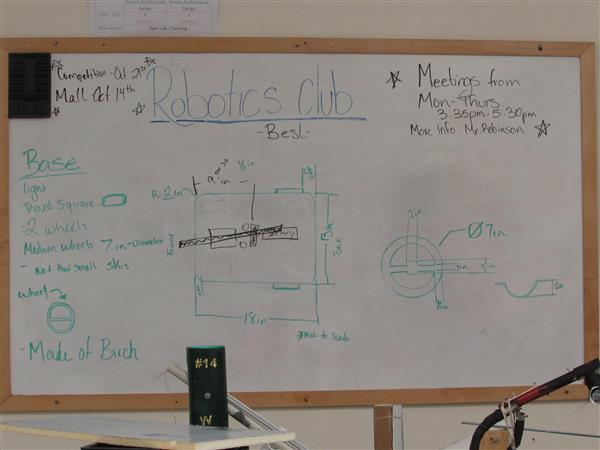 Open Lab / Tutoring
Competition - Oct 21st
Mall Oct 14th
Robotics Club
- Best -
Meetings from
Mon - Thurs
3:35pm - 5:30pm
More Info. Mr. Robinson
Base
light
Round Square
2 wheels
Medium wheels 7 in - Diameter
- Not that small skis
wheel
- Made of Birch
R. 2 in
9
in
Front
Battery
Back
18in
*Not to Scale
2in
Ø 7in
1in
#14
W